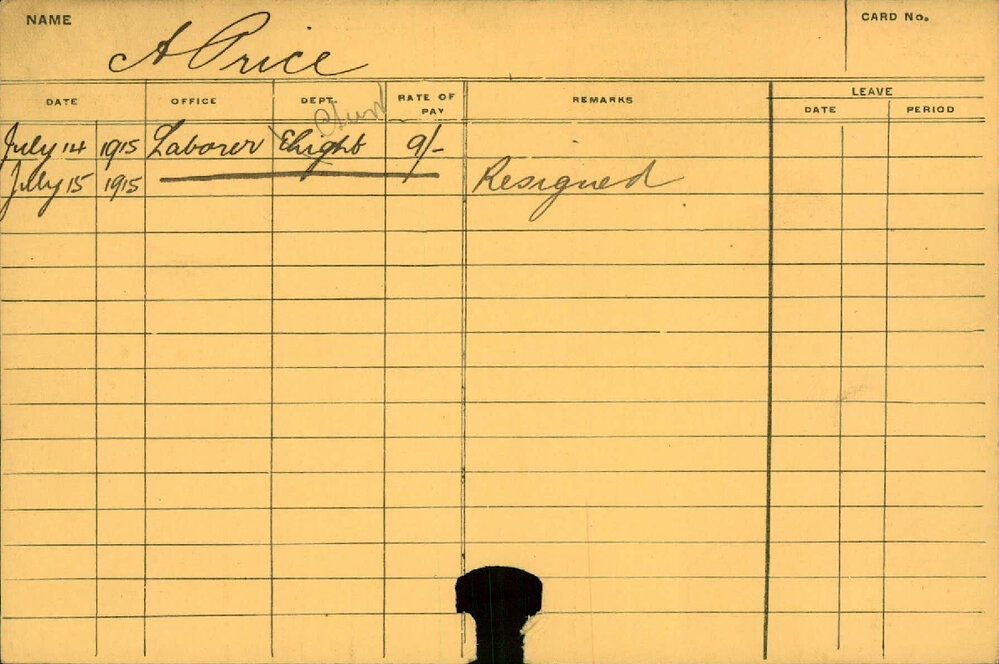 NAME
A Price
CARD No.
DATE OFFICE DEPT. RATE OF PAY REMARKS LEAVE
DATE PERIOD
July 14 1915 Laborer 9/-
July 15 1915 Resigned